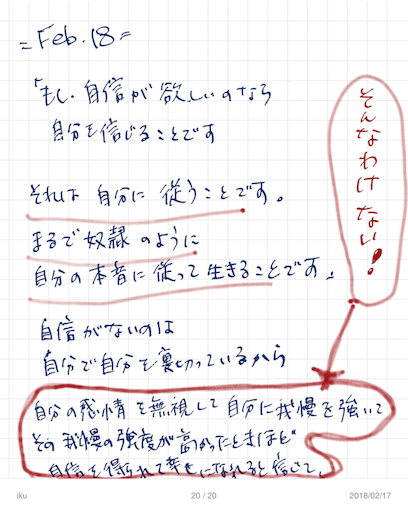 = Feb. 18 =
「もし、自信が欲しいのなら
自分を信じることです
それは 自分に 従うことです。
まるで奴隷のように
自分の本音に従って生きることです。
自信がないのは
自分で自分を裏切っているから
自分の感情を無視して自分に我慢を強いて
その我慢の強度が高かったときほど
自信を得られて幸せになれると信じて、
そんなわけない!
iku
20 / 20
2018/02/17